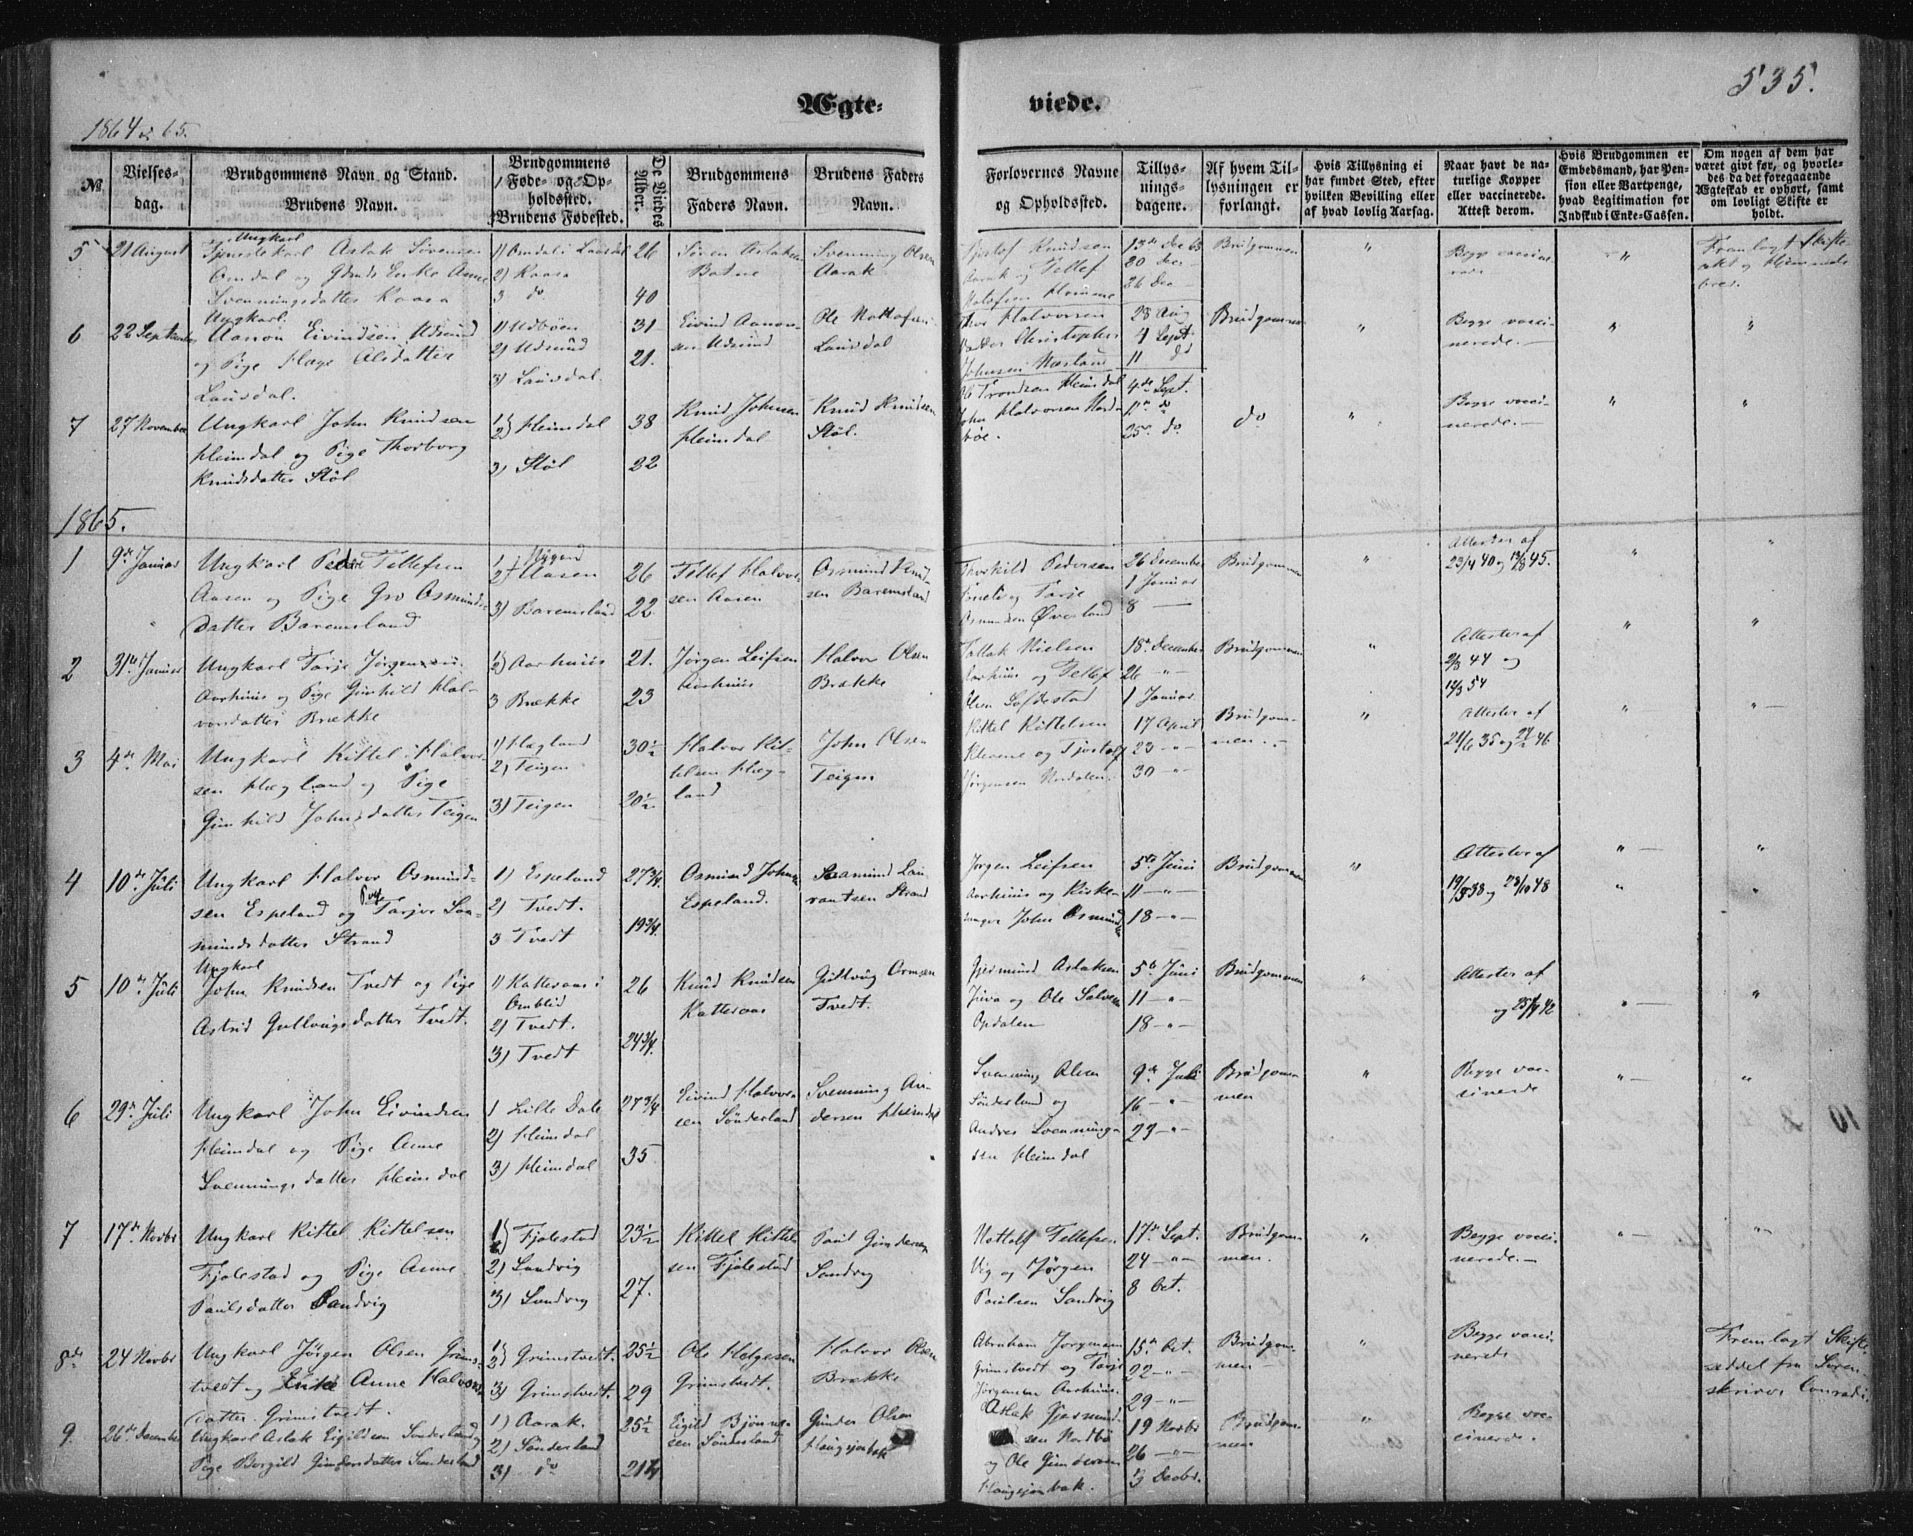 535.
Ægte-
viede.
1864 & 65.
No.
Vielses-
dag.
Brudgommens Navn og Stand.
Brudens Navn.
Brudgommens
Føde- og Op-
holdssted.
Brudens Fødested.
De Viedes
Alder.
Brudgommens
Faders Navn.
Brudens Faders
Navn.
Forlovernes Navne
og Opholdssted.
Tillys-
nings-
dagene.
Af hvem Til-
lysningen er
forlangt.
Hvis Tillysning ei
har fundet Sted, efter
hvilken Bevilling eller
af hvad lovlig Aarsag.
Naar havt de na-
turlige Kopper
eller vaccinerede.
Attest derom.
Hvis Brudgommen er
Embedsmand, har Pen-
sion eller Vartpenge,
hvad Legitimation for
Indskud i Enke-Cassen.
Om nogen af dem har
været givt før, og hvorle-
des da det foregaaende
Ægteskab er ophørt, samt
om lovligt Skifte er
holdt.
5
21 August
Ungkarl
Tjenestekarl Aslak Sørensen
Omdal og Enke Anne
Svenningsdatter Kaasa
1) Omdal i
2) Kaasa
3 do
26
40
Søren Aslaksen
Svenning Olsen
Aarak
Knudsen
Aarak og Tellef
13de Dec 63
20 Dec
26 Dec
Brudgommen
"
Begge vacci
"
Fremlagt Skifte-
6
22 September
Ungkarl
Aanon Eivindsen Udsund
og Pige Olsdatter
Lauvdal.
1) Udbøen
2) Udsund
3) Lauvdal.
31
21.
Eivind Aanon-
sen Udsund
Ole Nottofsen
Lauvdal
Thor Halvorsen
Christopher
Johnsen
28 Aug
4 Sept
11 do
Brudgommen
"
Begge vacci-
nerede.—
"
"
7
27 November
Ungkarl John Knudsen
Heimdal og Pige Thorborg
Knudsdatter Støl
1)
2) Heimdal
3) Støl
38
22
Knud Johnsen
Heimdal
Knud Knudsen
Støl.
Ole Trondsen Heimdal
John Halvorsen Nord-
bøe.
4de Sept.
11te do
25de do
do
"
Begge vacci-
nerede.—
"
"
1865.
1
9de Januar
Ungkarl Peder Tellefsen
Aasen og Pige Gro Osmunds-
datter Baremsland
1
2) Aasen
3) Baremsland
26
22
Tellef Halvor-
sen Aasen
Osmund Knud-
sen Baremsland
Thorkild Pedersen
og Tarje
Osmundsen Øvreland
26 December
1 Januar
8 —
Brudgommen
"
Attester af
23/4 40 og 45.
"
"
2
31te Januar
Ungkarl Tarje Jørgensen
Aarhuus og Pige Gunhild Hal-
vorsdatter Brække
1)
2) Aarhuus
3 Brække
21.
23
Jørgen Leifsen
Aarhuus
Halvor Olsen
Brække
Tallak Nielsen
Aarhuus og Tellef
Olsen
18de December
26 —"—
1 Januar
Brudgommen
"
Attester af
44 og
54
"
"
3
4de Mai
Ungkarl Kittel Halvor-
sen Hægland og Pige
Gunhild Johnsdatter Teigen
1) Hægland
2) Teigen
3) Teigen
30½
20½
Halvor Kit-
telsen Hæg-
land
John Olsen
Teigen
Kittel Kittelsen
og Tjostolf
Jørgensen
17 April
23 —"—
30 —"—
Brudgom-
men.—
"
Attester af
21/6 35 og 46
"
"
4
10de Juli
Ungkarl Halvor Osmund-
sen Espeland og Pige Tarjer Saa-
mundsdatter Strand
1) Espeland
2) Tvedt.
3 Tvedt
27¾
19¾
Osmund Johnsen
Espeland.
Saamund Lau-
rantsen Strand
Jørgen Leifsen
Aarhuus og Kirke-
sanger John Osmunds
5te Juni
11 —"—
18 —"—
Brudgommen
"
Attester af
19/5 38 og 23/10 48
"
"
5
10de Juli
Ungkarl
John Knudsen Tvedt og Pige
Astrid Gullvigsdatter Tvedt.
1) Katteraas i
Omblid
2) Tvedt.
3) Tvedt
26
24¾
Knud Knudsen
Katteraas
Gullvig Ormsen
Tvedt.
Gjermund Aslaksen
Juva og Ole Salvesen
Opdalen
5te Juni
11 —"—
18 —"—
Brudgommen
"
Attester af
og 42
"
"
6
29de Juli
Ungkarl John Eivindsen
Heimdal og Pige Anne
Svenningsdatter Heimdal
1 Lille Dale
2) Heimdal
3) Heimdal
27¾
35
Eivind Halvor-
sen Sønderland
Svenning An-
dersen Heimdal
Svenning Olsen
Sønderland og
Andres Svenning-
sen Heimdal
9de Juli
16 —"—
23 —"—
Brudgom-
men
"
Begge vac-
cinerede
"
"
7
17de Novbr
Ungkarl Kittel Kittelsen
Fjalestad og Pige Anne
Paulsdatter Sandvig
1) Fjalestad
2) Sandvig
3) Sandvig
23½
27.
Kittel Kittel-
sen Fjalestad
Paul Gundersen
Sandvig
Nottolf Tellefsen
Vig og Jørgen
Paulsen Sandvig
17de Sept.
24 —"—
8 Oct.
Brudgom-
men.
"
Begge vacci-
nerede.—
"
"
8de
24 Novbr
Ungkarl Jørgen Olsen Grims-
tvedt og Enke Anne Halvors-
datter Grimstvedt.
1)
2) Grimstvedt.
3) Grimstvedt.
25½
29
Ole Helgesen
Grimstvedt.
Halvor Olsen
Brække
Abraham Jørgensen
Grimstvedt og Tarje
Jørgensen Aarhuus
15de Oct.
22 —"—
29 —"—
Brudgom-
men—
"
Begge vacci-
nerede
Fremlagt Skifte-
seddel fra Soren-
skriver Conradi
9
26de December
Ungkarl Aslak Eigildsen Sønderland og
Pige Borgild Gundersdatter Sønderland
1) Aarak.
2) Sønderland
3) do
25½
21¼
Eigild Bjønn-
sen Sønderland
Gunder Olsen
Haugsjaabak
Aslak Gjermund-
sen Nordbø
og Ole Gundersen
Haugsjaabak.
19 Novbr
26 —"—
3 Decbr.
Brudgom-
men
"
Begge vac-
cinerede.